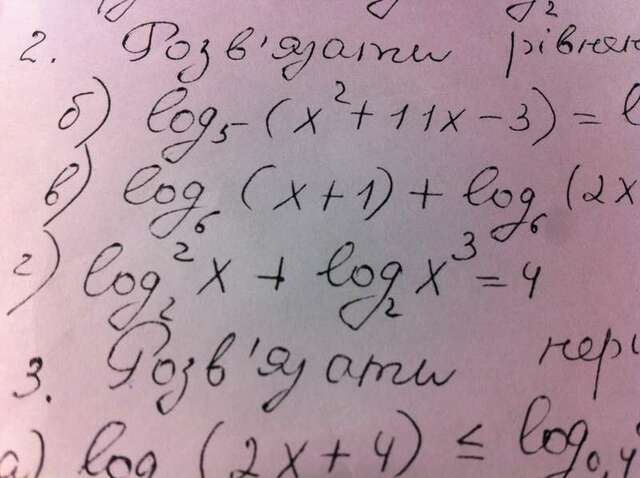 2. Розв'язати рівнян
б) log₅ (x² + 11x - 3) = l
в) log₆ (x + 1) + log₆ (2x
г) log₂² x + log₂ x³ = 4
3. Розв'язати нері
а) log (2x + 4) ≤ log₀,₄